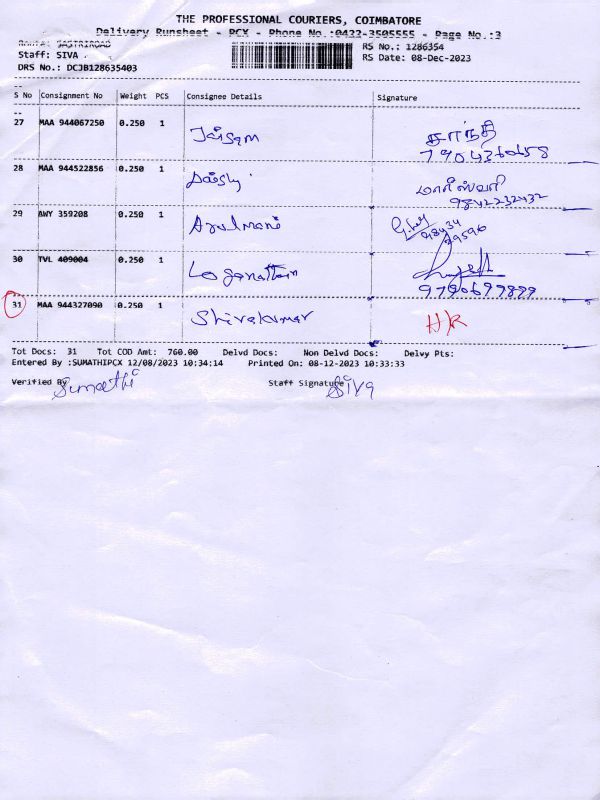 THE PROFESSIONAL COURIERS, COIMBATORE
Delivery Runsheet - PCX - Phone No.:0422-3505555 - Page No.:3
RS No.: 1286354
Staff: SIVA .
RS Date: 08-Dec-2023
DRS No.: DCJB128635403
S No Consignment No Weight PCS Consignee Details Signature
27 MAA 944067250 0.250 1 Jaisam சாந்தி
7904360658
28 MAA 944522856 0.250 1 Daisy மாரீஸ்வரி
9842232432
29 BWY 359208 0.250 1 Arulmani
98434
29596
30 TVL 409004 0.250 1 Loganathan
9790697899
31 MAA 944327090 0.250 1 Shivakumar H/R
Tot Docs: 31 Tot COD Amt: 760.00 Delvd Docs: Non Delvd Docs: Delvy Pts:
Entered By :SUMATHIPCX 12/08/2023 10:34:14 Printed On: 08-12-2023 10:33:33
Verified By Sumathi Staff Signature Siva